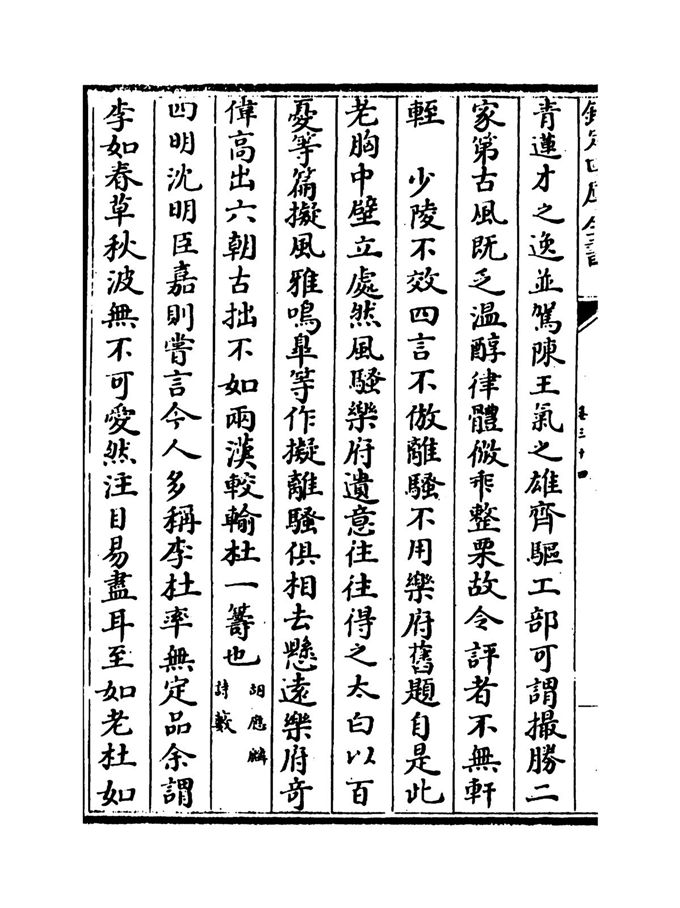 欽定四庫全書
卷三十四
青蓮才之逸並駕陳王氣之雄齊驅工部可謂撮勝二
家第古風既乏温醇律體微乖整栗故令評者不無軒
輊　少陵不效四言不倣離騷不用樂府舊題自是此
老胸中壁立處然風騷樂府遺意往往得之太白以百
憂等篇擬風雅鳴臯等作擬離騷俱相去懸遠樂府奇
偉高出六朝古拙不如兩漢較輸杜一籌也胡應麟詩藪
四明沈明臣嘉則嘗言今人多稱李杜率無定品余謂
李如春草秋波無不可愛然注目易盡耳至如老杜如